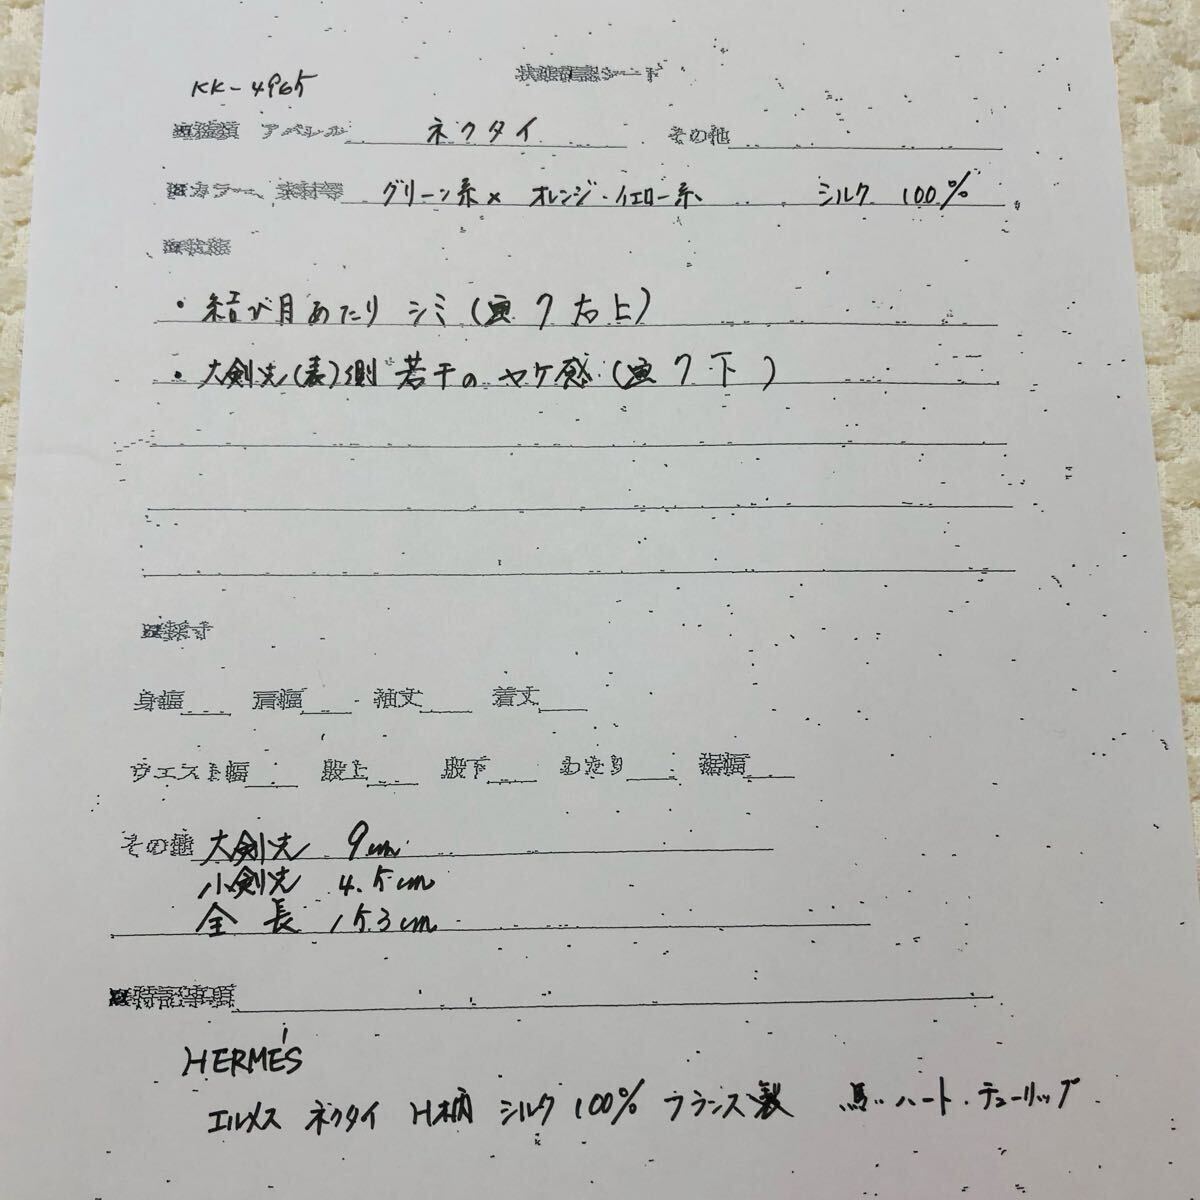 状態確認シート
KK-4965
■種類 アパレル ネクタイ その他
■カラー、素材等 グリーン系× オレンジ・イエロー系 シルク 100%
■状態
・結び目あたり シミ(画7右上)
・大剣先(表)側 若干のヤケ感(画7下)
■採寸
身幅 肩幅 袖丈 着丈
ウエスト幅 股上 股下 わたり 裾幅
その他 大剣先 9cm
小剣先 4.5cm
全長 153cm
■特記事項
HERMÉS
エルメス ネクタイ H柄 シルク100% フランス製 馬・ハート・チューリップ